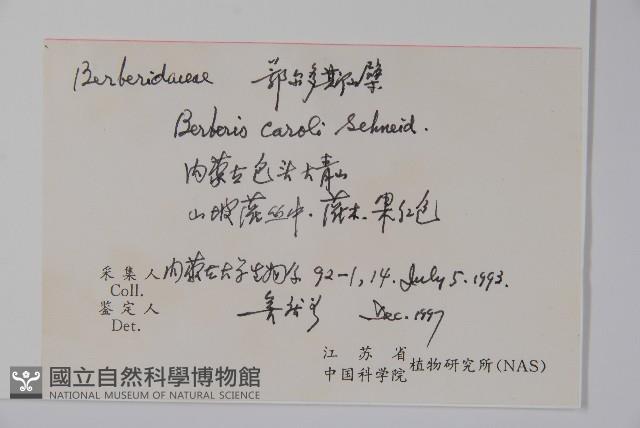 Berberidaceae 鄂尔多斯小檗
Berberis caroli Schneid.
内蒙古包头大青山
山坡灌丛中.灌木.果红色
采集人 内蒙古大学生物系 92-1,14. July 5. 1993.
Coll.
鉴定人 Dec. 1997
Det.
江苏省
中国科学院 植物研究所(NAS)
國立自然科學博物館
NATIONAL MUSEUM OF NATURAL SCIENCE